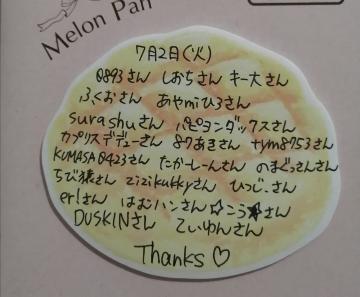 Melon Pan
7月2日(火)
0893さん しおちさん キー大さん
ふくおさん あやみひろさん
surashuさん パピヨンダックスさん
カプリスデデューさん 87あきさん tym8753さん
KUMASA0423さん たかーしーんさん のまどっさんさん
ちび猿さん zizikukkyさん ひつじ.さん
erlさん はむハンさん ☆こう★さん
DUSKINさん てぃゆんさん
Thanks♡